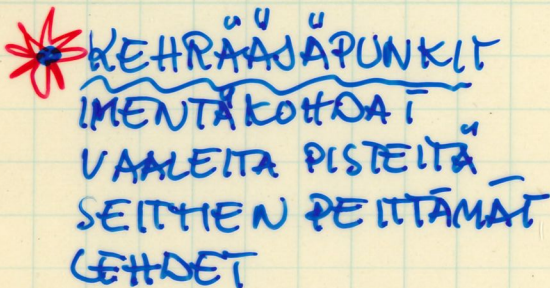 KEHRÄÄJÄPUNKIT
IMENTÄKOHDAT
VAALEITA PISTEITÄ
SEITTIEN PEITTÄMÄT
LEHDET